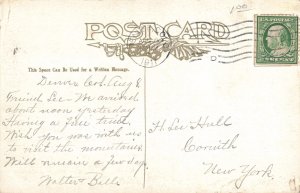 POST CARD
This Space Can Be Used for a Written Message.
Denver Col. Aug 8
Friend Lee: We arrived
about noon yesterday
Having a fine time.
Wish you was with us
to visit the mountains.
Will remain a few days
Walter Bell
H Lee Hull
Corinth
New York.